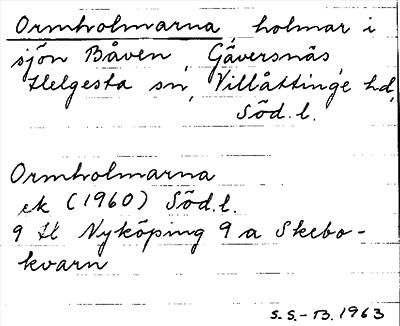 Ormholmarna, holmar i
sjön Båven, Gäversnäs,
Helgesta sn, Villåttinge hd,
Söd.l.
Ormholmarna
ek (1960) Söd.l.
9 H Nyköping 9 a Skebo-
kvarn
S.S.-B. 1963